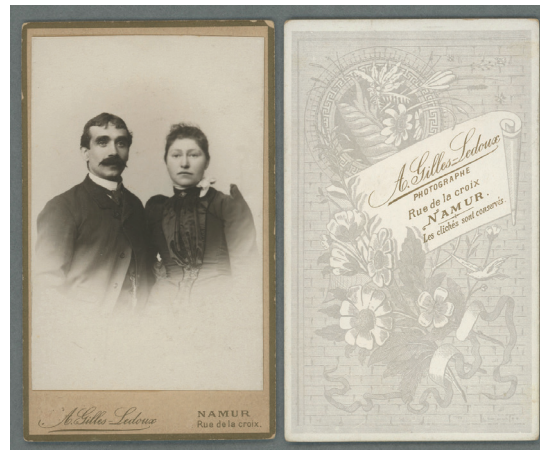 A. Gilles-Ledoux
NAMUR
Rue de la croix.
A. Gilles-Ledoux
PHOTOGRAPHE
Rue de la croix
NAMUR.
Les clichés sont conservés.